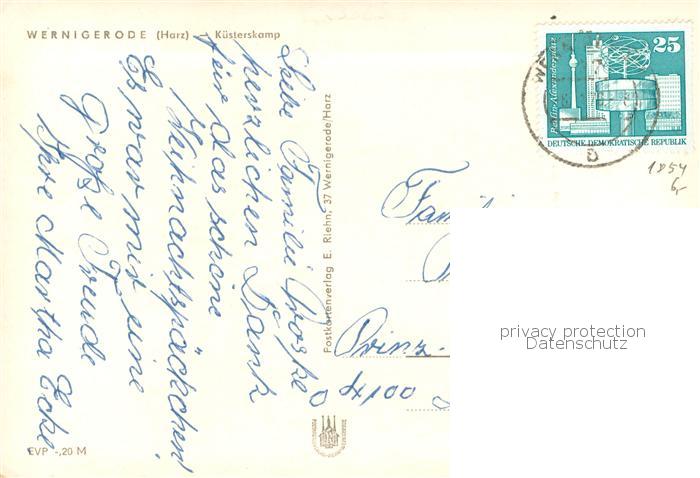 WERNIGERODE (Harz) – Küsterskamp
Liebe Familie Proske
herzlichen Dank
für das schöne
Weihnachtspäckchen!
Es war mir eine
große Freude
Ihre Martha Ecke
EVP -,20 M
Postkartenverlag E. Riehn, 37 Wernigerode/Harz
Berlin-Alexanderplatz
25
DEUTSCHE DEMOKRATISCHE REPUBLIK
1854
6,-
Fam
Prinz-
4100 D
privacy protection
Datenschutz